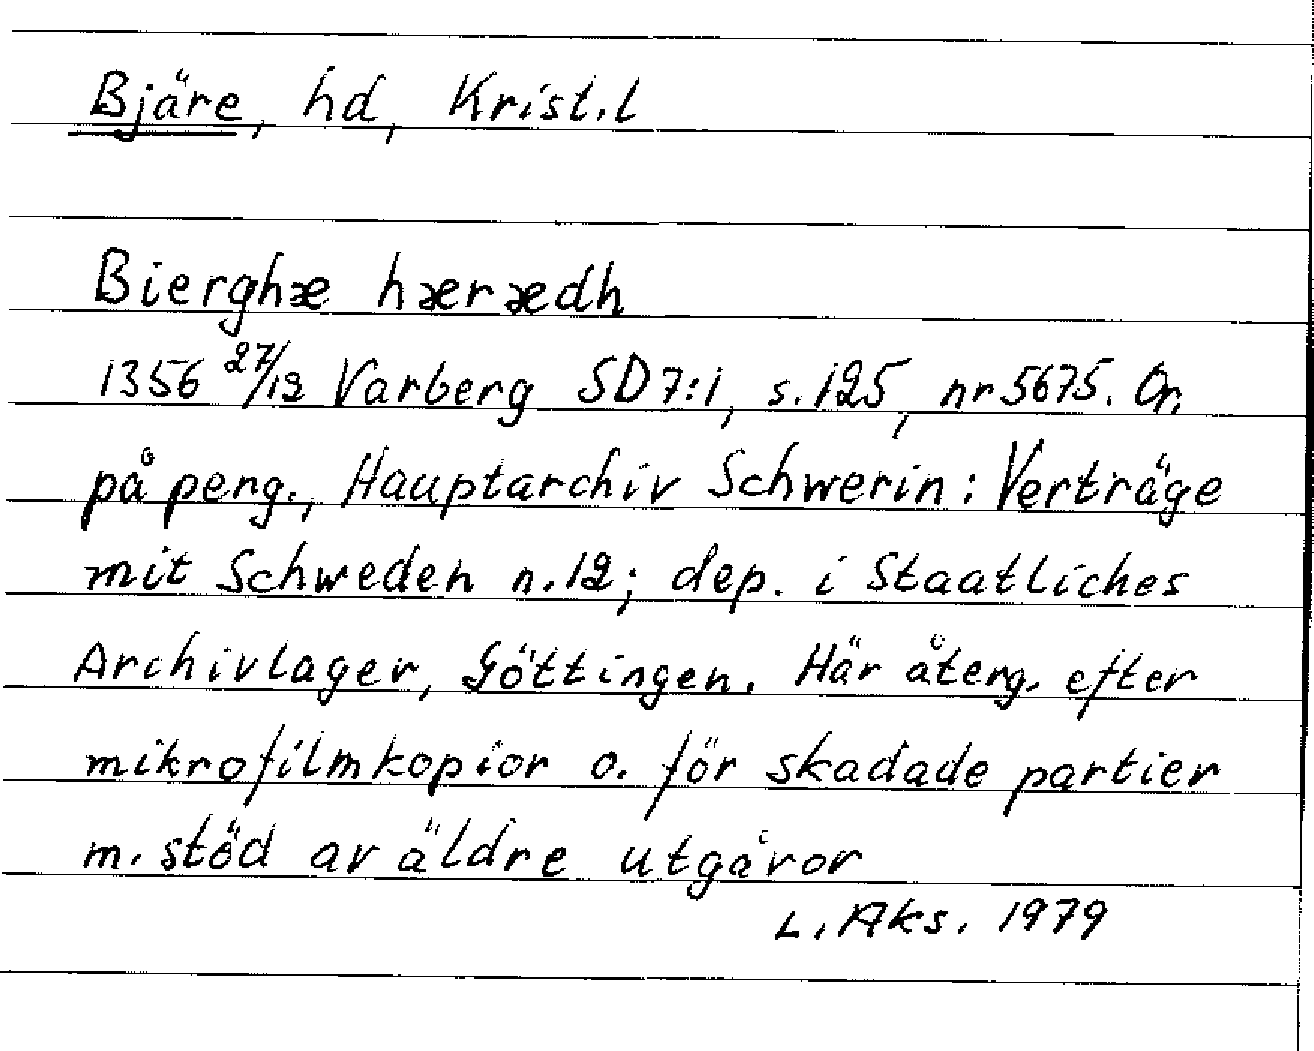 Bjäre, hd, Krist.l
Bierghæ hærædh
1356 27/12 Varberg SD 7:1, s.125, nr 5675. Or.
på peng., Hauptarchiv Schwerin: Verträge
mit Schweden n.12; dep. i Staatliches
Archivlager, Göttingen. Här återg. efter
mikrofilmkopior o. för skadade partier
m. stöd av äldre utgåvor
L. Aks. 1979